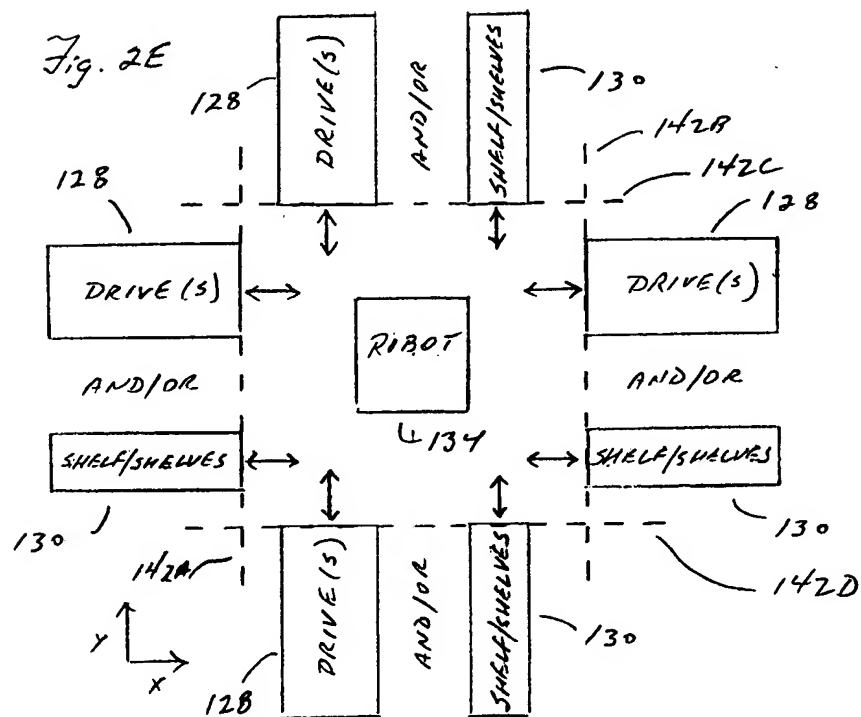 Fig. 2E
128
DRIVE(S)
AND/OR
SHELF/SHELVES
130
142B
142C
128
DRIVE(S)
128
DRIVE(S)
ROBOT
134
AND/OR
AND/OR
SHELF/SHELVES
130
SHELF/SHELVES
130
142A
142D
Y
X
128
DRIVE(S)
AND/OR
SHELF/SHELVES
130